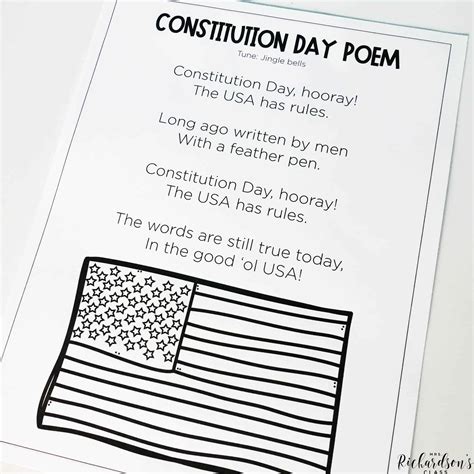 CONSTITUTION DAY POEM
Tune: Jingle bells
Constitution Day, hooray!
The USA has rules.
Long ago written by men
With a feather pen.
Constitution Day, hooray!
The USA has rules.
The words are still true today,
In the good ‘ol USA!
MRS
Richardson's
CLASS